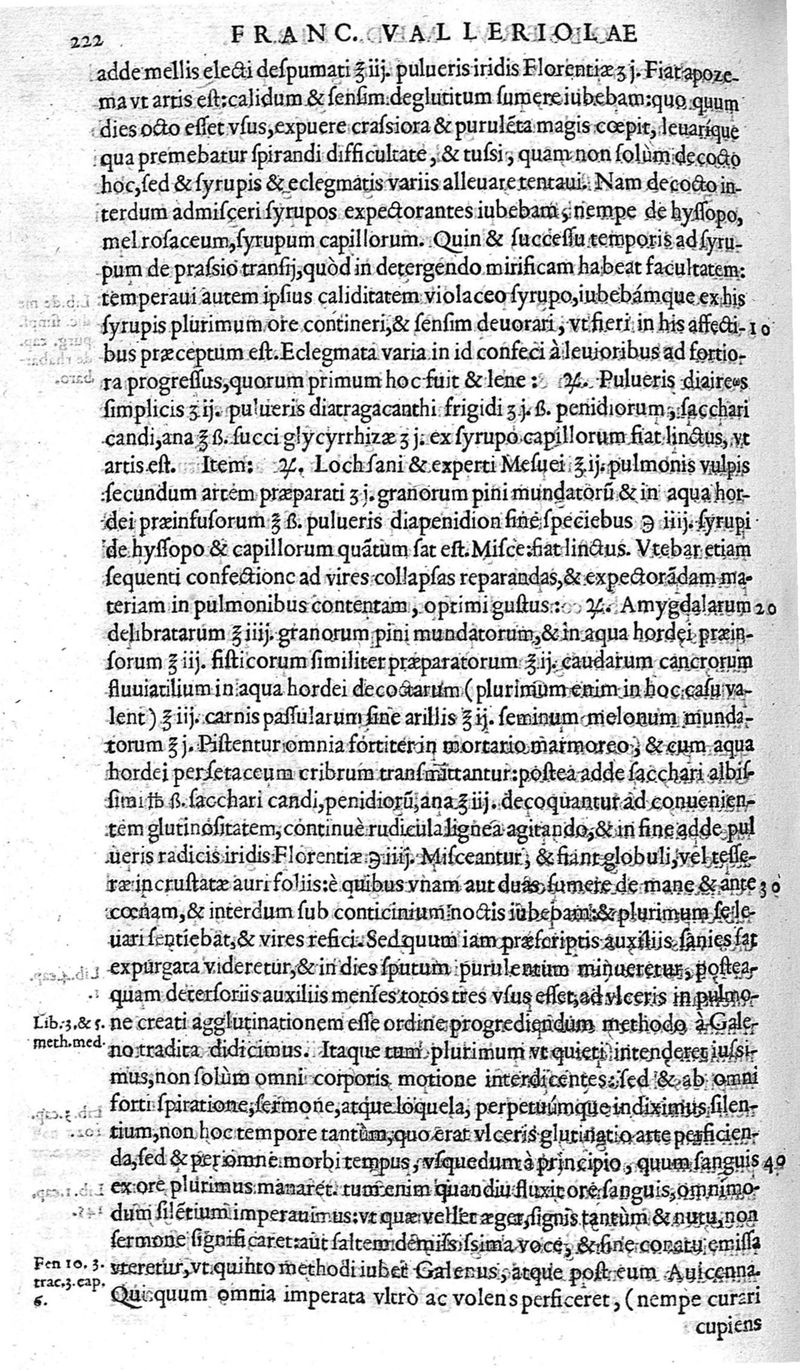 222
FRANC. VALLERIOLAE
adde mellis electi despumati ℥iij. pulueris iridis Florentiæ ʒ j. Fiat apoze-
ma vt artis est: calidum & sensim deglutitum sumere iubebam: quo quum
dies octo esset vsus, expuere crassiora & purulẽta magis cœpit, leuaríque
qua premebatur spirandi difficultate, & tussi, quam non solùm decocto
hoc, sed & syrupis & eclegmatis variis alleuare tentaui. Nam decocto in-
terdum admisceri syrupos expectorantes iubebam, nempe de hyssopo,
mel rosaceum, syrupum capillorum. Quin & successu temporis ad syru-
pum de prassio transij, quòd in detergendo mirificam habeat facultatem:
temperaui autem ipsius caliditatem violaceo syrupo, iubebámque ex his
syrupis plurimum ore contineri, & sensim deuorari, vt fieri in his affecti- 10
bus præceptum est. Eclegmata varia in id confeci à leuioribus ad fortio-
ra progressus, quorum primum hoc fuit & lene: ℞. Pulueris diaireos
simplicis ʒ ij. pulueris diatragacanthi frigidi ʒ j. ß. penidiorum, sacchari
candi, ana ℥ ß. succi glycyrrhizæ ʒ j. ex syrupo capillorum fiat linctus, vt
artis est. Item: ℞. Loch sani & experti Mesuei ℥ ij. pulmonis vulpis
secundum artem præparati ʒ j. granorum pini mundatorũ & in aqua hor-
dei præinfusorum ℥ ß. pulueris diapenidion sine speciebus ℈ iiij. syrupi
de hyssopo & capillorum quãtum sat est. Misce: fiat linctus. Vtebar etiam
sequenti confectione ad vires collapsas reparandas, & expectorãdam ma-
teriam in pulmonibus contentam, optimi gustus: ℞. Amygdalarum 20
delibratarum ℥ iiij. granorum pini mundatorum, & in aqua hordei præin-
sorum ℥ iij. fisticorum similiter præparatorum ℥ ij. caudarum cancrorum
fluuiatilium in aqua hordei decoctarum (plurimum enim in hoc casu va-
lent) ℥ iij. carnis passularum sine arillis ℥ ij. seminum melonum munda-
torum ℥ j. Pistentur omnia fortiter in mortario marmoreo, & cum aqua
hordei per setaceum cribrum transmittantur: postea adde sacchari albis-
simi ℔ ß. sacchari candi, penidiorũ, ana ℥ iij. decoquantur ad conuenien-
tem glutinositatem, continuè rudicula lignea agitando, & in fine adde pul
ueris radicis iridis Florentiæ ℈ iiij. Misceantur, & fiant globuli, vel tesse-
ræ incrustatæ auri foliis: è quibus vnam aut duas sumere de mane & ante 30
cœnam, & interdum sub conticinium noctis iubebam: & plurimum se le-
uari sentiebat, & vires refici. Sed quum iam præscriptis auxiliis sanies sat
expurgata videretur, & in dies sputum purulentum minueretur, postea-
quam detersoriis auxiliis menses totos tres vsus esset, ad vlceris in pulmo-
Lib. 3. & 5. meth. med.
ne creati agglutinationem esse ordine progrediendum methodo à Gale-
no tradita didicimus. Itaque tum plurimum vt quieti intenderet iussi-
mus, non solùm omni corporis motione interdicentes: sed & ab omni
forti spiratione, sermone, atque loquela, perpetuúmque indiximus silen-
tium, non hoc tempore tantùm, quo erat vlceris glutinatio arte perficien-
da, sed & per omne morbi tempus, vsquedum à principio, quum sanguis 40
ex ore plurimus manaret. tum enim quandiu fluxit ore sanguis, omnimo-
dum silẽtium imperauimus: vt quæ vellet æger, signis tantùm & nutu, non
sermone significaret: aut saltem demississima voce, & sine conatu emissa
Fen 10. 3. trac. 3. cap. 6.
vteretur, vt quinto methodi iubet Galenus, atque post eum Auicenna.
Qui quum omnia imperata vltrò ac volens perficeret, (nempe curari
cupiens